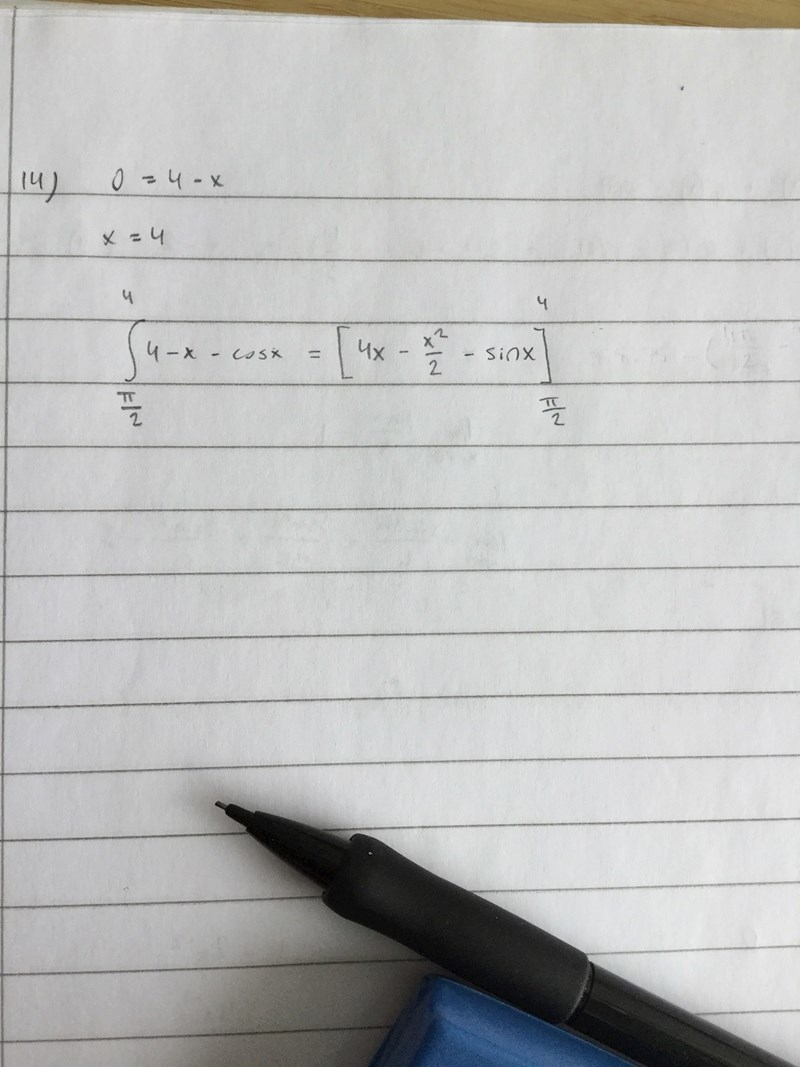 14) 0 = 4 - x
x = 4
∫_{π/2}^{4} 4 - x - cosx = [4x - x²/2 - sinx]_{π/2}^{4}